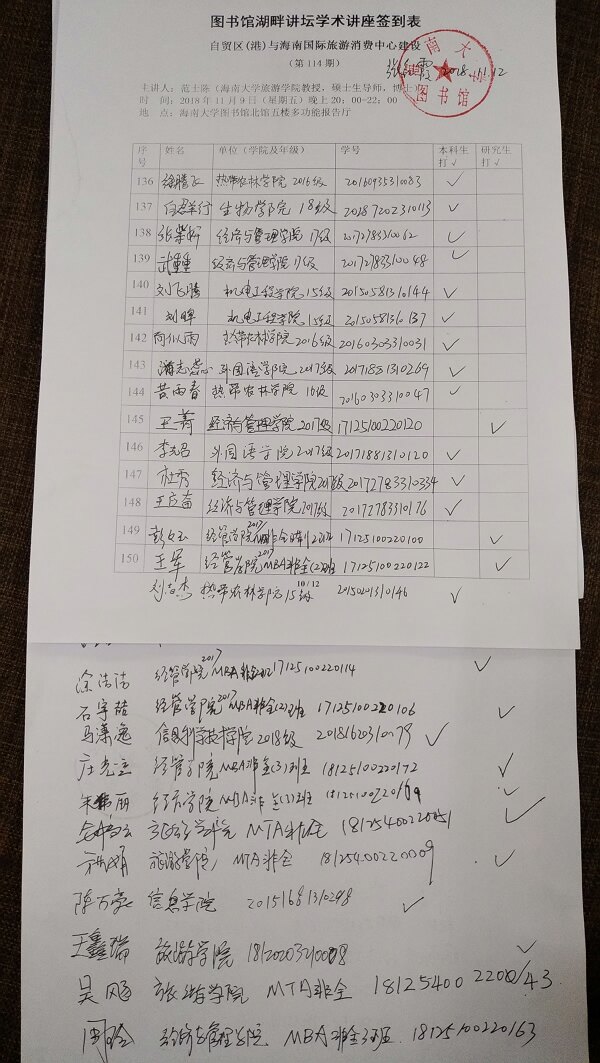 图书馆湖畔讲坛学术讲座签到表
自贸区(港)与海南国际旅游消费中心建设
(第 114 期)
2018.11.12
图书馆
主讲人：范士陈（海南大学旅游学院教授，硕士生导师，博士）
时 间：2018 年 11 月 9 日（星期五）晚上 20：00-22：00
地 点：海南大学图书馆北馆五楼多功能报告厅
序号 姓名 单位（学院及年级） 学号 本科生打√ 研究生打√
136 徐腾飞 热带农林学院 2016级 20160935310083 √
137 生物学院 18级 20187202310113 √
138 经济与管理学院 17级 20172783310062 √
139 武重重 经济与管理学院 17级 20172783310048 √
140 刘飞腾 机电工程学院 15级 20150581310144 √
141 刘晖 机电工程学院 15级 20150581310137 √
142 向以雨 热带农林学院 2016级 20160303310031 √
143 外国语学院 2017级 20171881310269 √
144 黄雨春 热带农林学院 16级 20160303310047 √
145 王菁 经济与管理学院 2017级 17125100220120 √
146 外国语学院 2017级 20171881310120 √
147 杜秀 经济与管理学院 2017级 20172783310334 √
148 王应苗 经济与管理学院 2017级 20172783310176 √
149 经管学院 2017 MBA非全 (2)班 17125100220100 √
150 王军 经管学院 2017 MBA非全(2)班 17125100220122 √
10 / 12
刘杰 热带农林学院 15级 20150201310146 √
涂洁洁 经管学院 2017 MBA 17125100220114 √
石宇喆 经管学院 2017 MBA非全(2)班 17125100220106 √
马潇逸 信息科学技术学院 2018级 20181620310079 √
经管学院 MBA非全(3)班 18125100220172 √
朱丽 经济学院 MBA非全(2)班 18125100220169 √
旅游学院 MTA非全 18125400220051 √
旅游学院 MTA非全 18125400220009 √
陈万豪 信息学院 20151681310298 √
王鑫瑞 旅游学院 18120203210008 √
吴飓 旅游学院 MTA非全 18125400220043
周玲 经济与管理学院 MBA非全3班 18125100220163